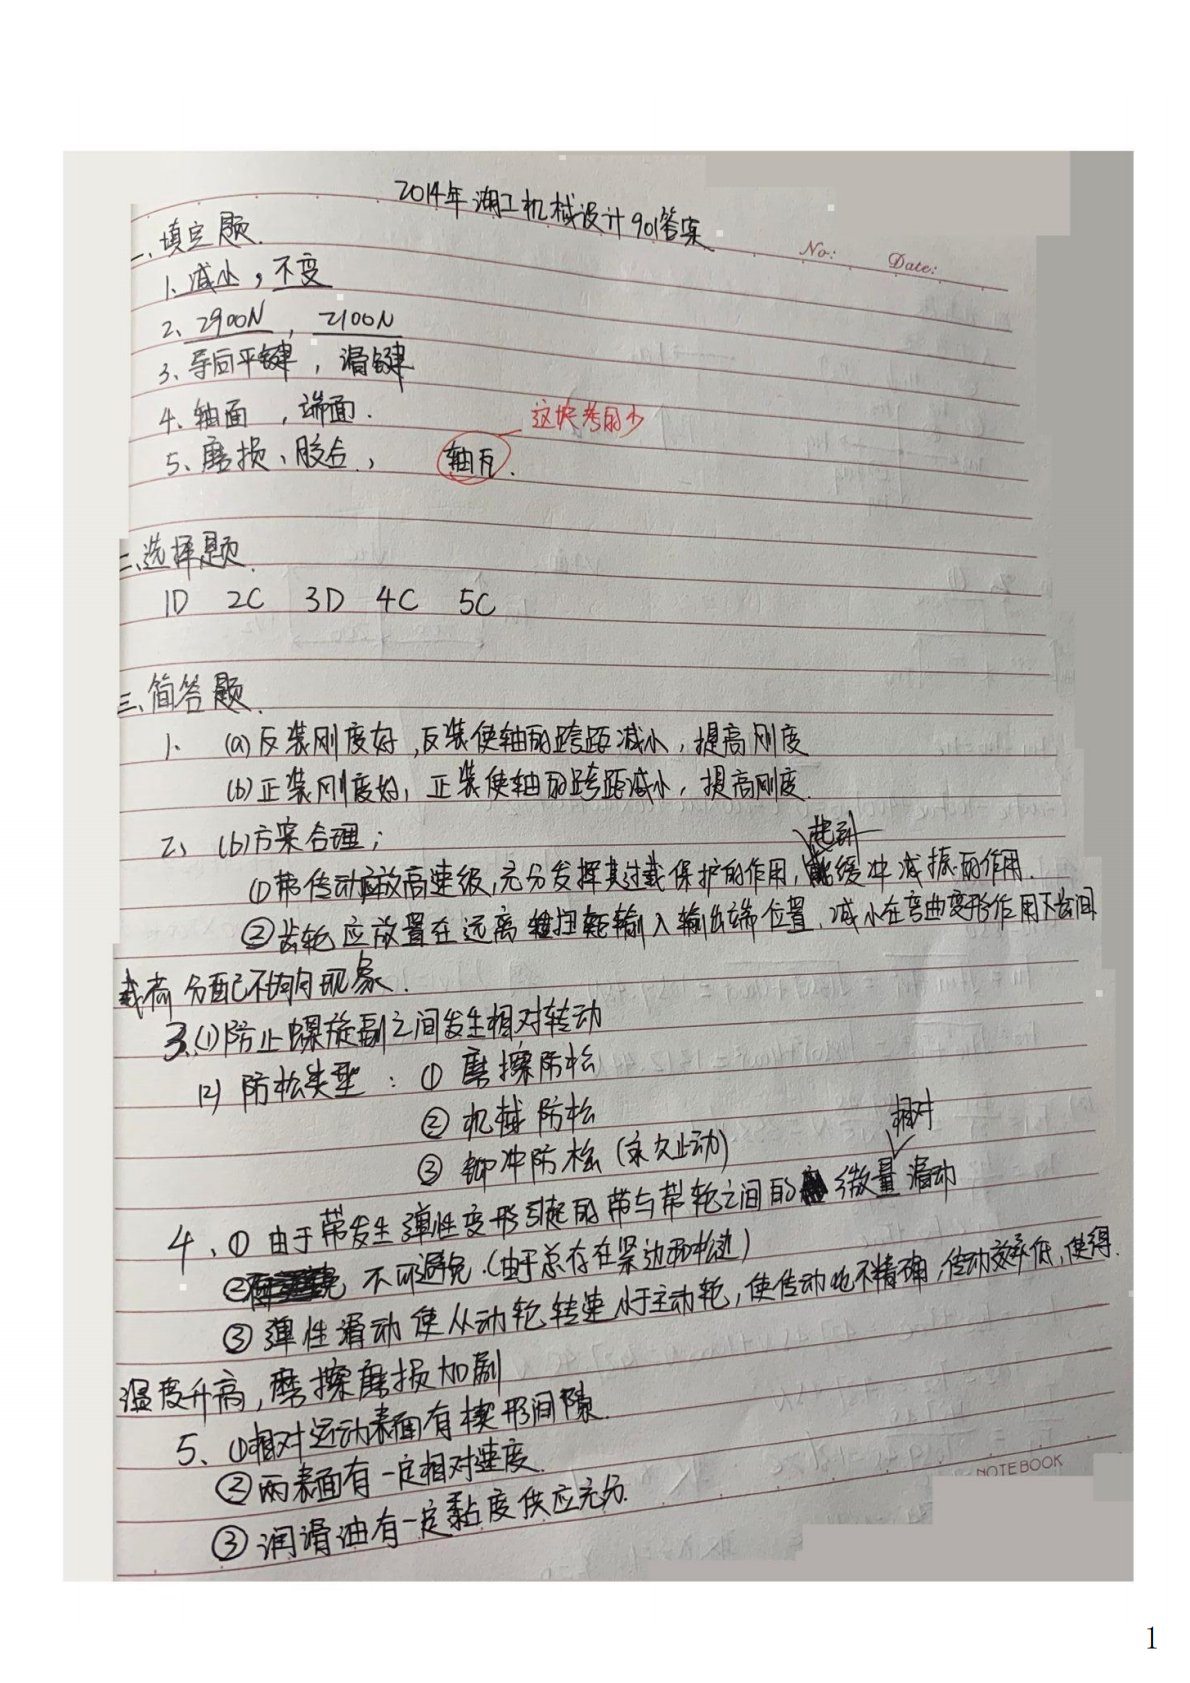 2014年湖工机械设计901答案
No: Date:
一、填空题.
1、减小，不变
2、2900N，2100N
3、导向平键，滑键
4、轴面，端面.
这块考的少
5、磨损、胶合，轴瓦.
二、选择题.
1D 2C 3D 4C 5C
三、简答题.
1、(a)反装刚度好，反装使轴的跨距减小，提高刚度
(b)正装刚度好，正装使轴的跨距减小，提高刚度.
2、(b)方案合理；
①带传动应放高速级，充分发挥其过载保护的作用，起到缓冲减振的作用.
②齿轮应放置在远离扭矩输入输出端位置，减小在弯曲变形作用下齿间
载荷分配不均的现象.
3、(1)防止螺旋副之间发生相对转动
(2)防松类型：①磨擦防松
②机械防松
③铆冲防松(永久止动)
4、①由于带发生弹性变形引起的带与带轮之间的微量相对滑动
②不可避免.(由于总存在紧边和松边)
③弹性滑动使从动轮转速小于主动轮，使传动比不精确，传动效率低，使得
温度升高，磨擦磨损加剧
5、①相对运动表面有楔形间隙.
②两表面有一定相对速度.
③润滑油有一定黏度供应充分.
NOTEBOOK
1